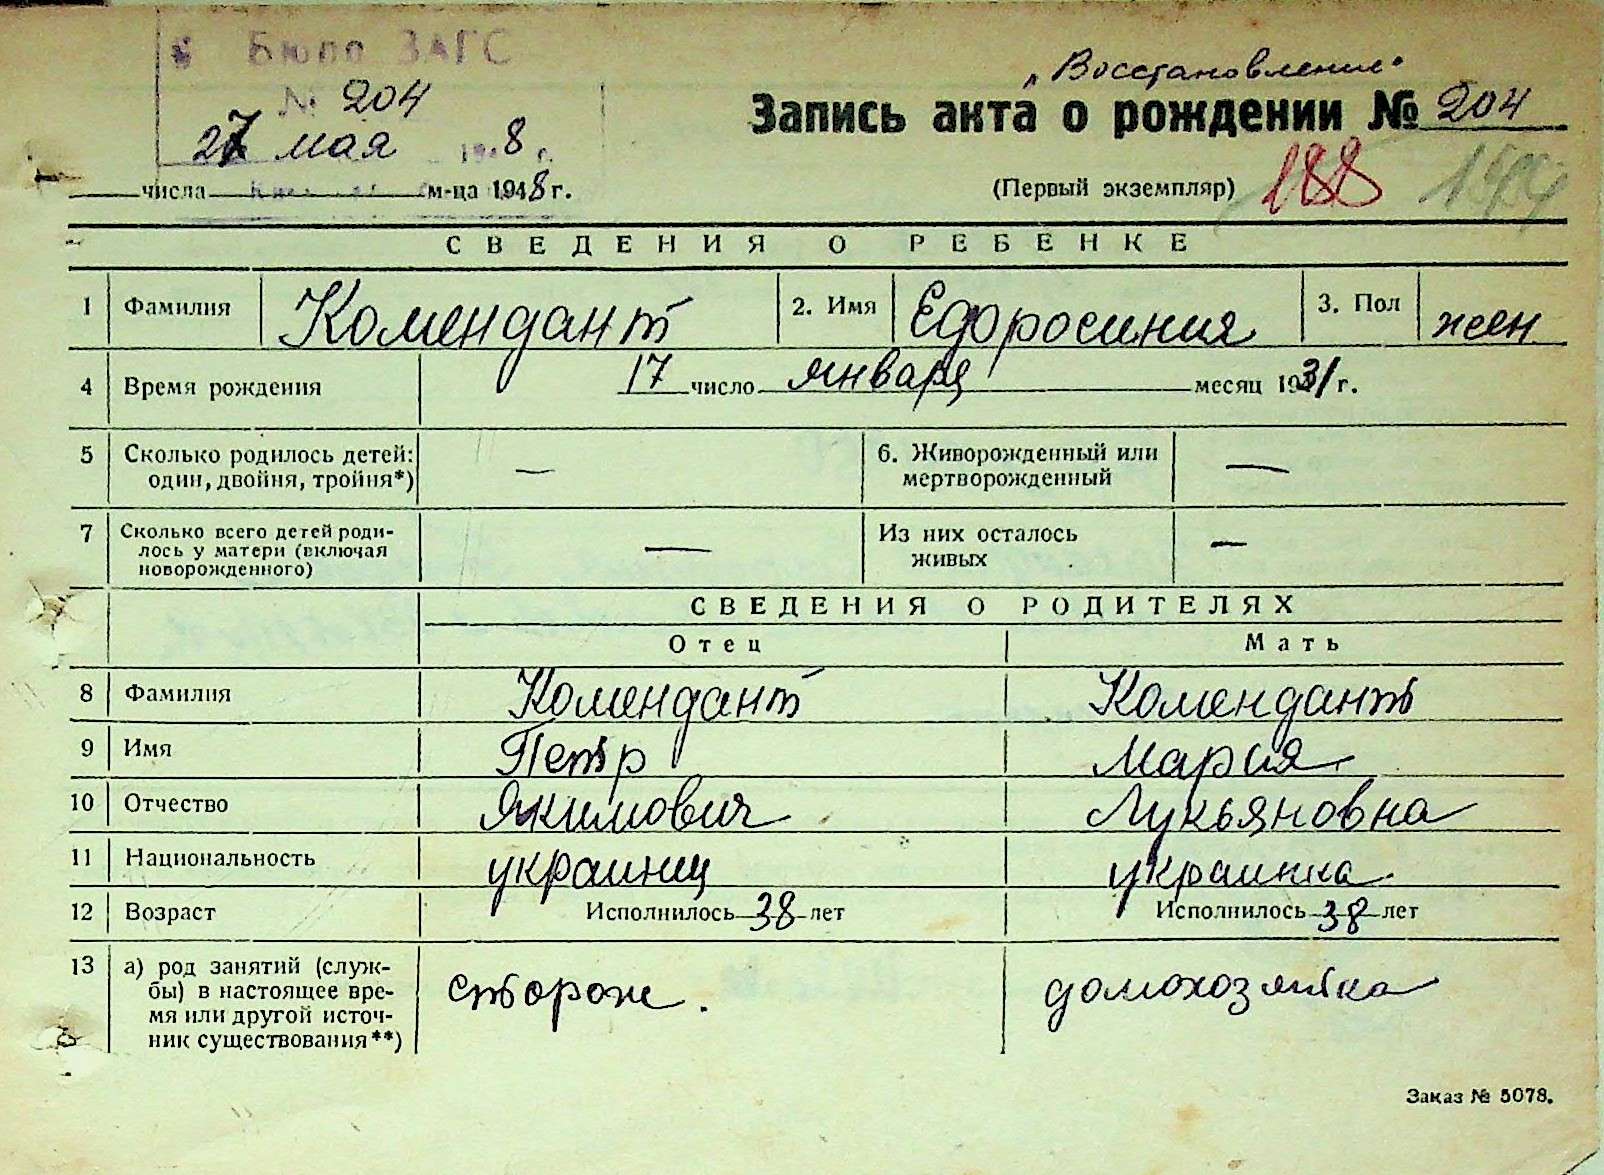 Бюро ЗАГС
№ 204
27 мая 1948 г.
числа м-ца 1948 г.
"Восстановление"
Запись акта о рождении № 204
(Первый экземпляр) 188
СВЕДЕНИЯ О РЕБЕНКЕ
1 Фамилия Комендант 2. Имя Едоросиния 3. Пол жен
4 Время рождения 17 число января месяц 1931 г.
5 Сколько родилось детей: — 6. Живорожденный или —
один, двойня, тройня*) мертворожденный
7 Сколько всего детей роди- — Из них осталось —
лось у матери (включая живых
новорожденного)
СВЕДЕНИЯ О РОДИТЕЛЯХ
Отец Мать
8 Фамилия Комендант Комендант
9 Имя Петр Мария
10 Отчество Якимович Лукьяновна
11 Национальность украинец украинка
12 Возраст Исполнилось 38 лет Исполнилось 38 лет
13 а) род занятий (служ- сторож. домохозяйка
бы) в настоящее вре-
мя или другой источ-
ник существования**)
Заказ № 5078.